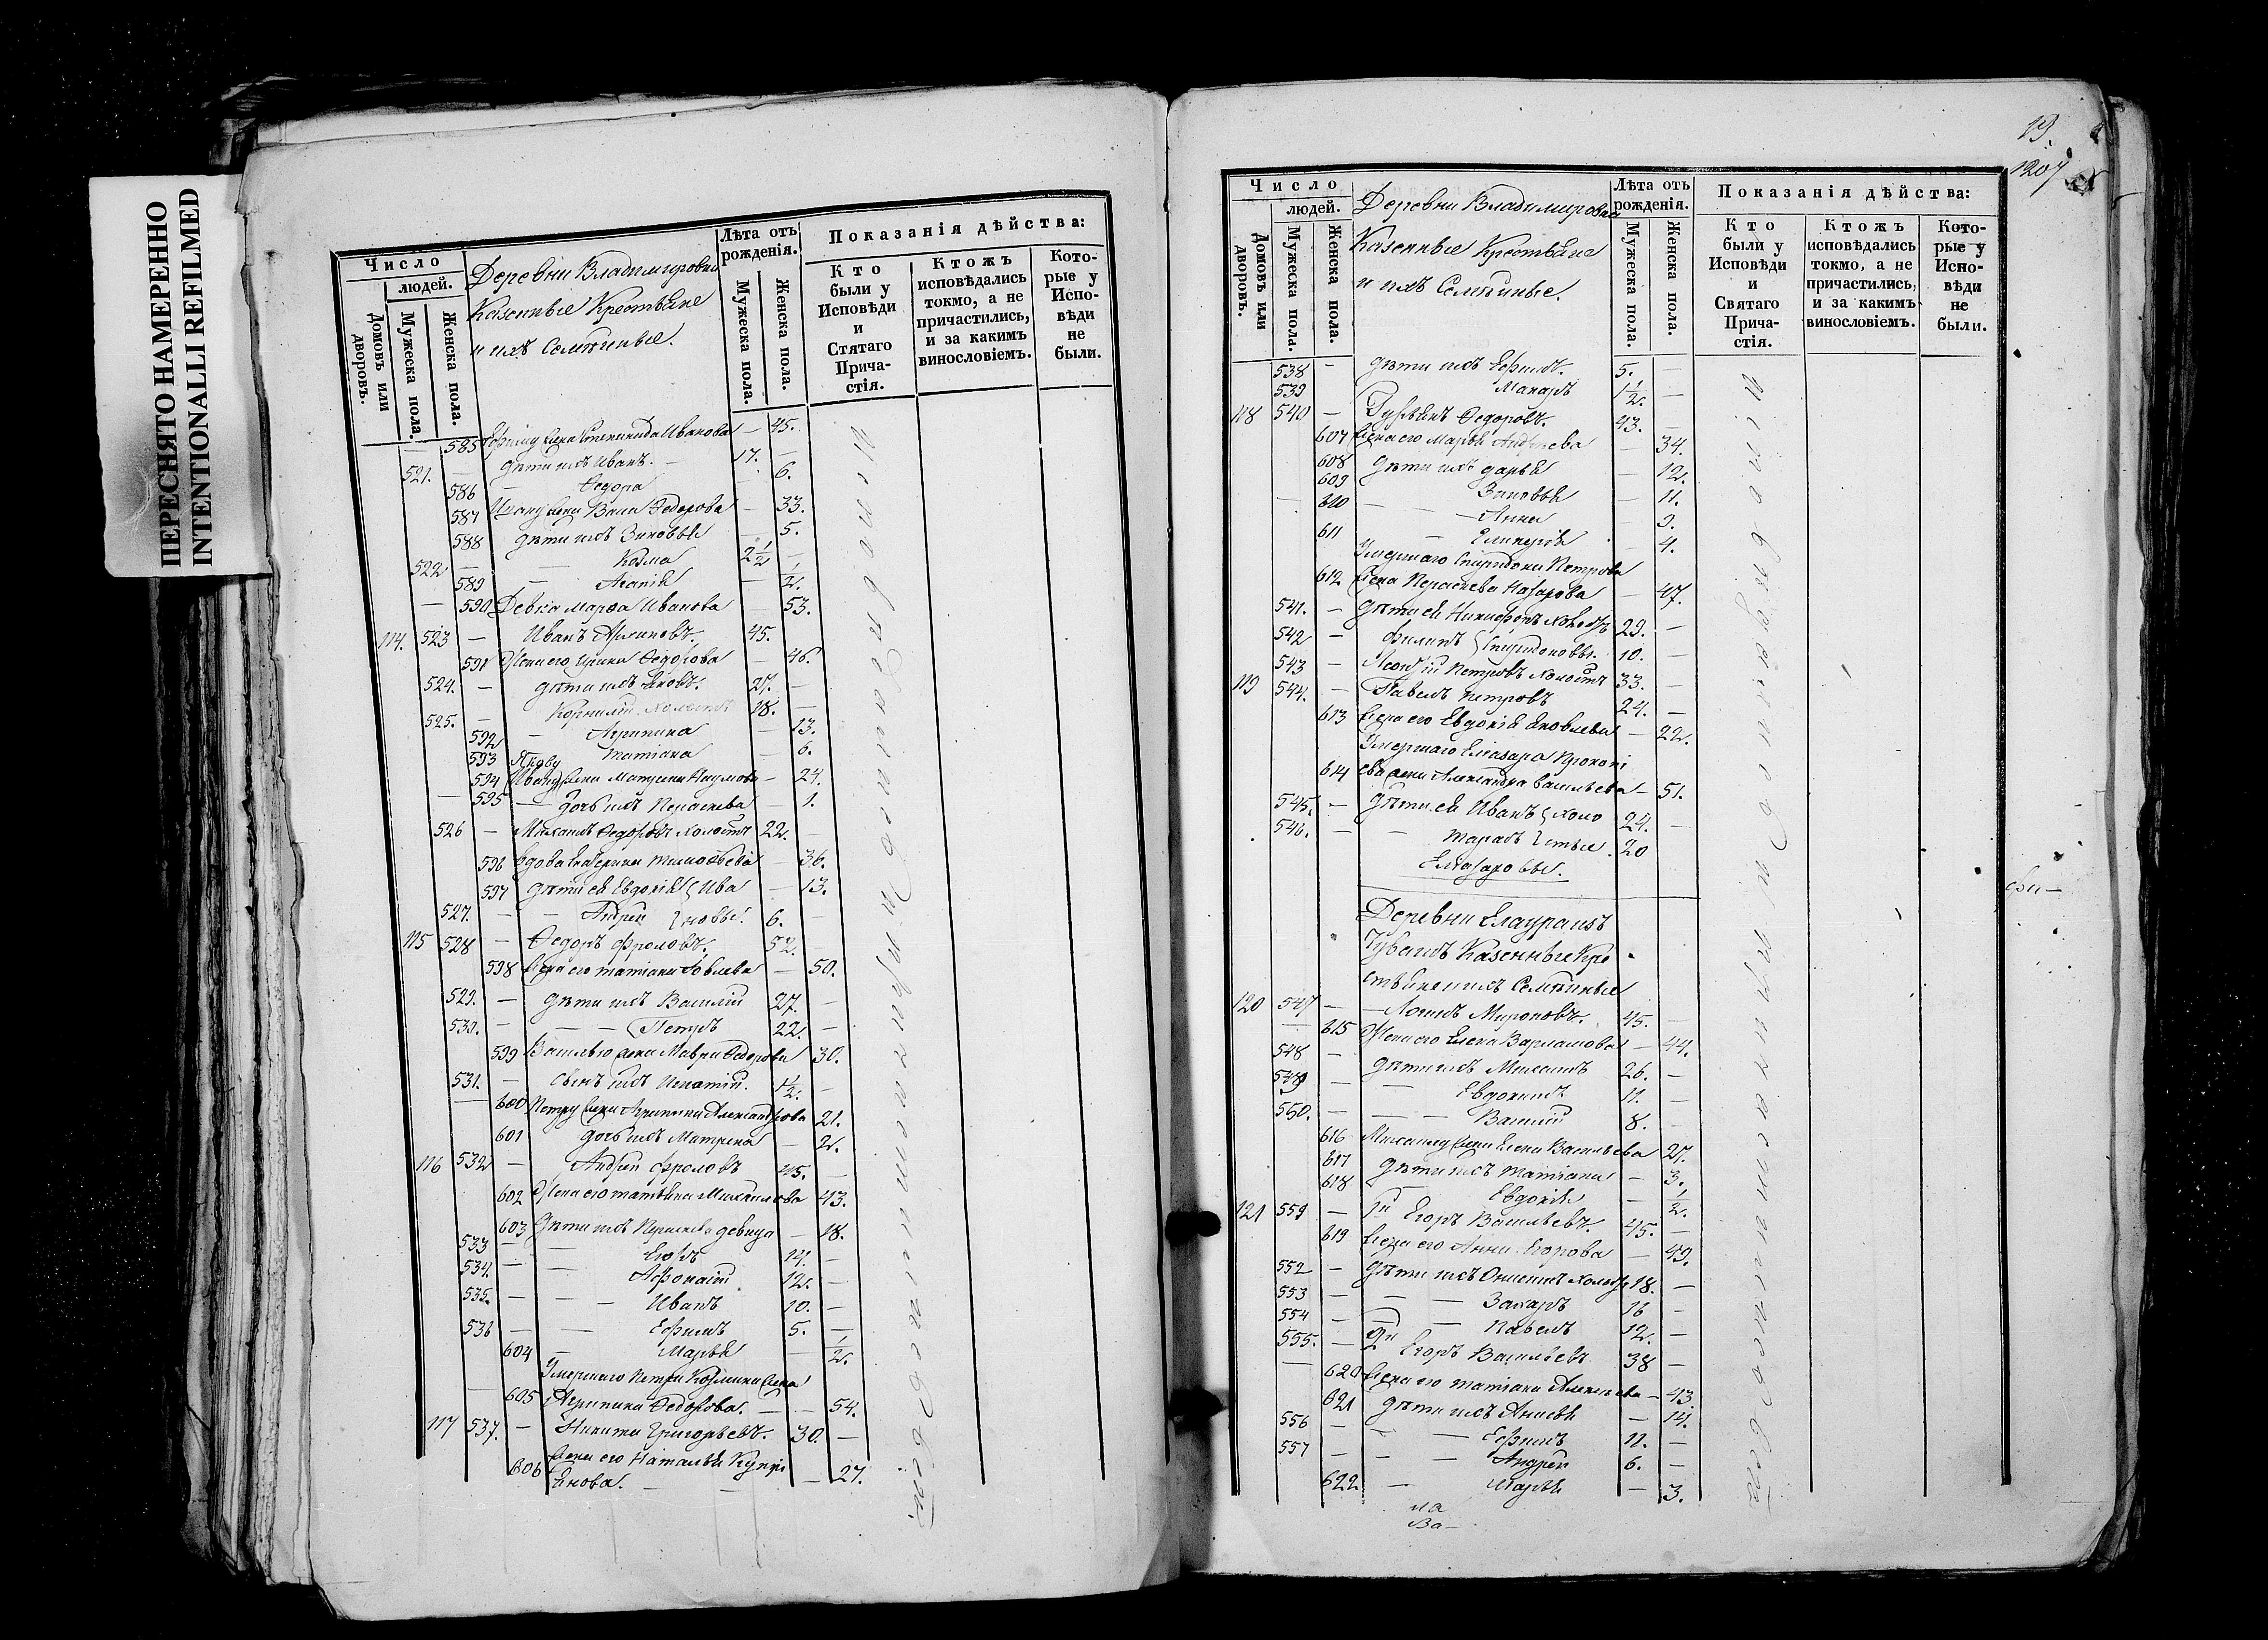 ПЕРЕСНЯТО НАМЕРЕННО
INTENTIONALLI REFILMED
Число
людей.
Домовъ или дворовъ.
Мужеска пола.
Женска пола.
Деревни Владимировки
Казенные Крестьяне
и ихъ Семейные.
Лѣта отъ рожденія.
Мужеска пола.
Женска пола.
Показанія дѣйства:
Кто были у Исповѣди и Стятаго Прича-стія.
Ктожъ исповѣдались токмо, а не причастились, и за какимъ винословіемъ.
Кото-рые у Испо-вѣди не были.
— 585 Ефиму жена Степанида Иванова — 45.
521. — дѣти ихъ Иванъ. — 17. —
586 — Ѳедора — 6.
587 Ивану жена Васа Ѳедорова — 33.
588 дѣти ихъ Зиновья — 5.
522 — — Козма 2 1/2 —
589 — Агапія — 1/2.
— 590 Девка Марѳа Иванова — 53.
114. 523 — Иванъ 45.
591 Жена его Ирина Ѳедорова — 46.
524. — дѣти ихъ Яковъ. 27. —
525. — Корнилій Холостъ 18. —
592 — Агрипина — 13.
593 Татіана — 6.
Якову
594 Ивану жена Матрена Наумова — 24.
— 595 — дочь ихъ Параскева — 1.
526 — Михаилъ Ѳедоровъ холостъ 22. —
596 Вдова Екатерина Тимофѣева — 36.
597 дѣти ея Евдокія Ива — 13.
527. — — Андрей новы. 6. —
115 528 — Ѳедоръ Фроловъ. 52. —
598 жена его Татіана Іовлева — 50.
529. — дѣти ихъ Василій 27. —
530. — — — Петръ 22. —
599 Василью жена Мавра Ѳедорова 30.
531. — сынъ ихъ Игнатій. 1 1/2. —
600 Петру жена Агрипина Александрова 21.
601 дочь ихъ Матрена — 2.
116 532 — Андрей Фроловъ 45. —
602 Жена его Татьяна Михайлова 43.
603 Дѣти ихъ Параскева девица — 18.
533 — — Егоръ 14. —
534. — — Афонасій 12. —
535. — — — Иванъ 10. —
536 — — Ефимъ 5. —
604 — Марья — 1/2.
Умершаго Петра Козмина жена
— 605 Агрипина Ѳедорова. — — 54.
117 537. — Никита Григорьевъ. 30. —
606 жена его Наталья Купрі
янова. — — 27.
Исповѣдались
19.
1207
Число
людей.
Домовъ или дворовъ.
Мужеска пола.
Женска пола.
Деревни Владимировки
Казенные Крестьяне
и ихъ Семейные.
Лѣта отъ рожденія.
Мужеска пола.
Женска пола.
Показанія дѣйства:
Кто были у Исповѣди и Святаго Прича-стія.
Ктожъ исповѣдались токмо, а не причастились, и за какимъ винословіемъ.
Кото-рые у Испо-вѣди не были.
538 — дѣти ихъ Ефимъ. 5. —
539 Макаръ 1 1/2. —
118 540 — Гурьянъ Ѳедоровъ. 43. —
607 жена его Марья Андреева — 34.
608 дѣти ихъ Дарья — 12.
609 Зиновья — 11.
610 — — — Анна — 9.
611 — Гликерія — 4.
Умершаго Спиридона Петрова
612 жена Параскева Назарова — 47.
541. — дѣти ея Никифоръ холостъ 29. —
542 — Филипъ Спиридоновы. 10. —
543 — Леонтій Петровъ Холостъ 33. —
119 544. — Павелъ Петровъ 24. —
613 жена его Евдокія Яковлева — 22.
Умершаго Елизара Прокопі
614 ева жена Александра Васильева — 51.
545. — Дѣти ея Иванъ холо 24. —
546. — — Тарасъ стые 20
Елизаровы.
Деревни
Чувашъ Казенные Кре
стьяне и ихъ Семейные
120 547 — — Мироновъ. 45. —
— 615 Жена его Елена Варламова — 44.
548 — дѣти ихъ Михаилъ 26. —
549 — — Евдокимъ 11. —
550. — — — Василій 8. —
616 Михаилу жена Елена Васильева 27.
617 дѣти ихъ Татіана — 3.
618 Евдокія — 1/2.
121 559 — й Егоръ Васильевъ. 45. —
619 жена его Анна Егорова — 49.
552 — дѣти ихъ Онисимъ Холостъ 18. —
553 — — — Захаръ 16 —
554 — — — Павелъ 12. —
555. — 2й Егоръ Васильевъ 38 —
— 620 жена его Татіана Алексеева — 43.
621 дѣти ихъ Анисья — 14.
556 — — — Ефимъ 11. —
557 — — — Андрей 6. —
622 — Марья — 3.
на
Ва—